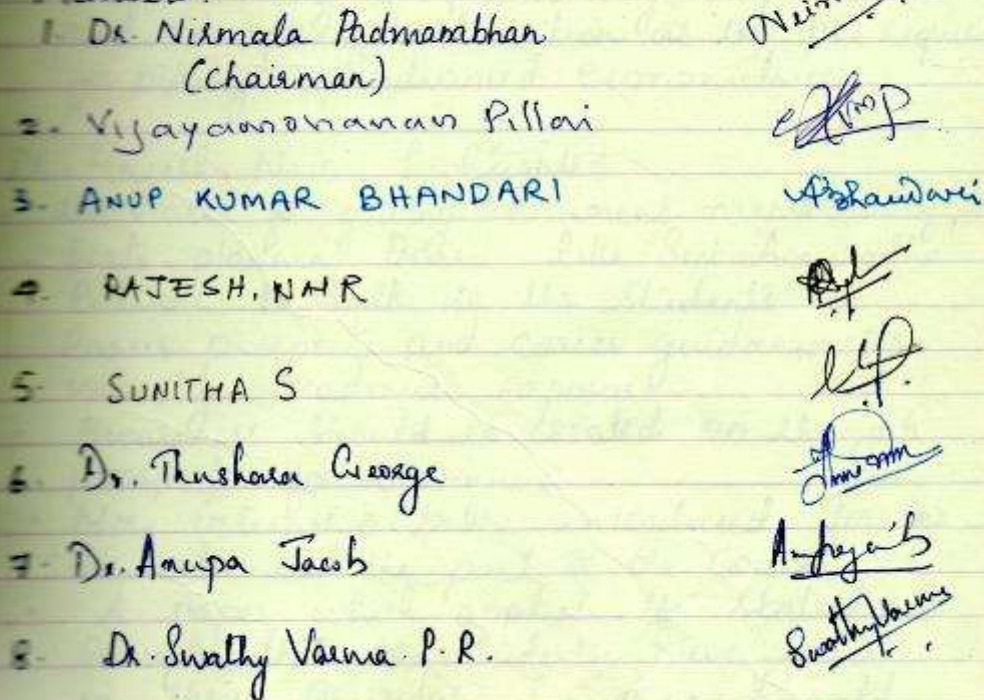 1. Dr. Nirmala Padmanabhan
(Chairman)
2. Vijayamohanan Pillai
3. ANUP KUMAR BHANDARI ABhandari
4. RAJESH. NAIR
5. SUNITHA S
6. Dr. Thushara George
7. Dr. Anupa Jacob
8. Dr. Swathy Varma P.R. SwathyVarma